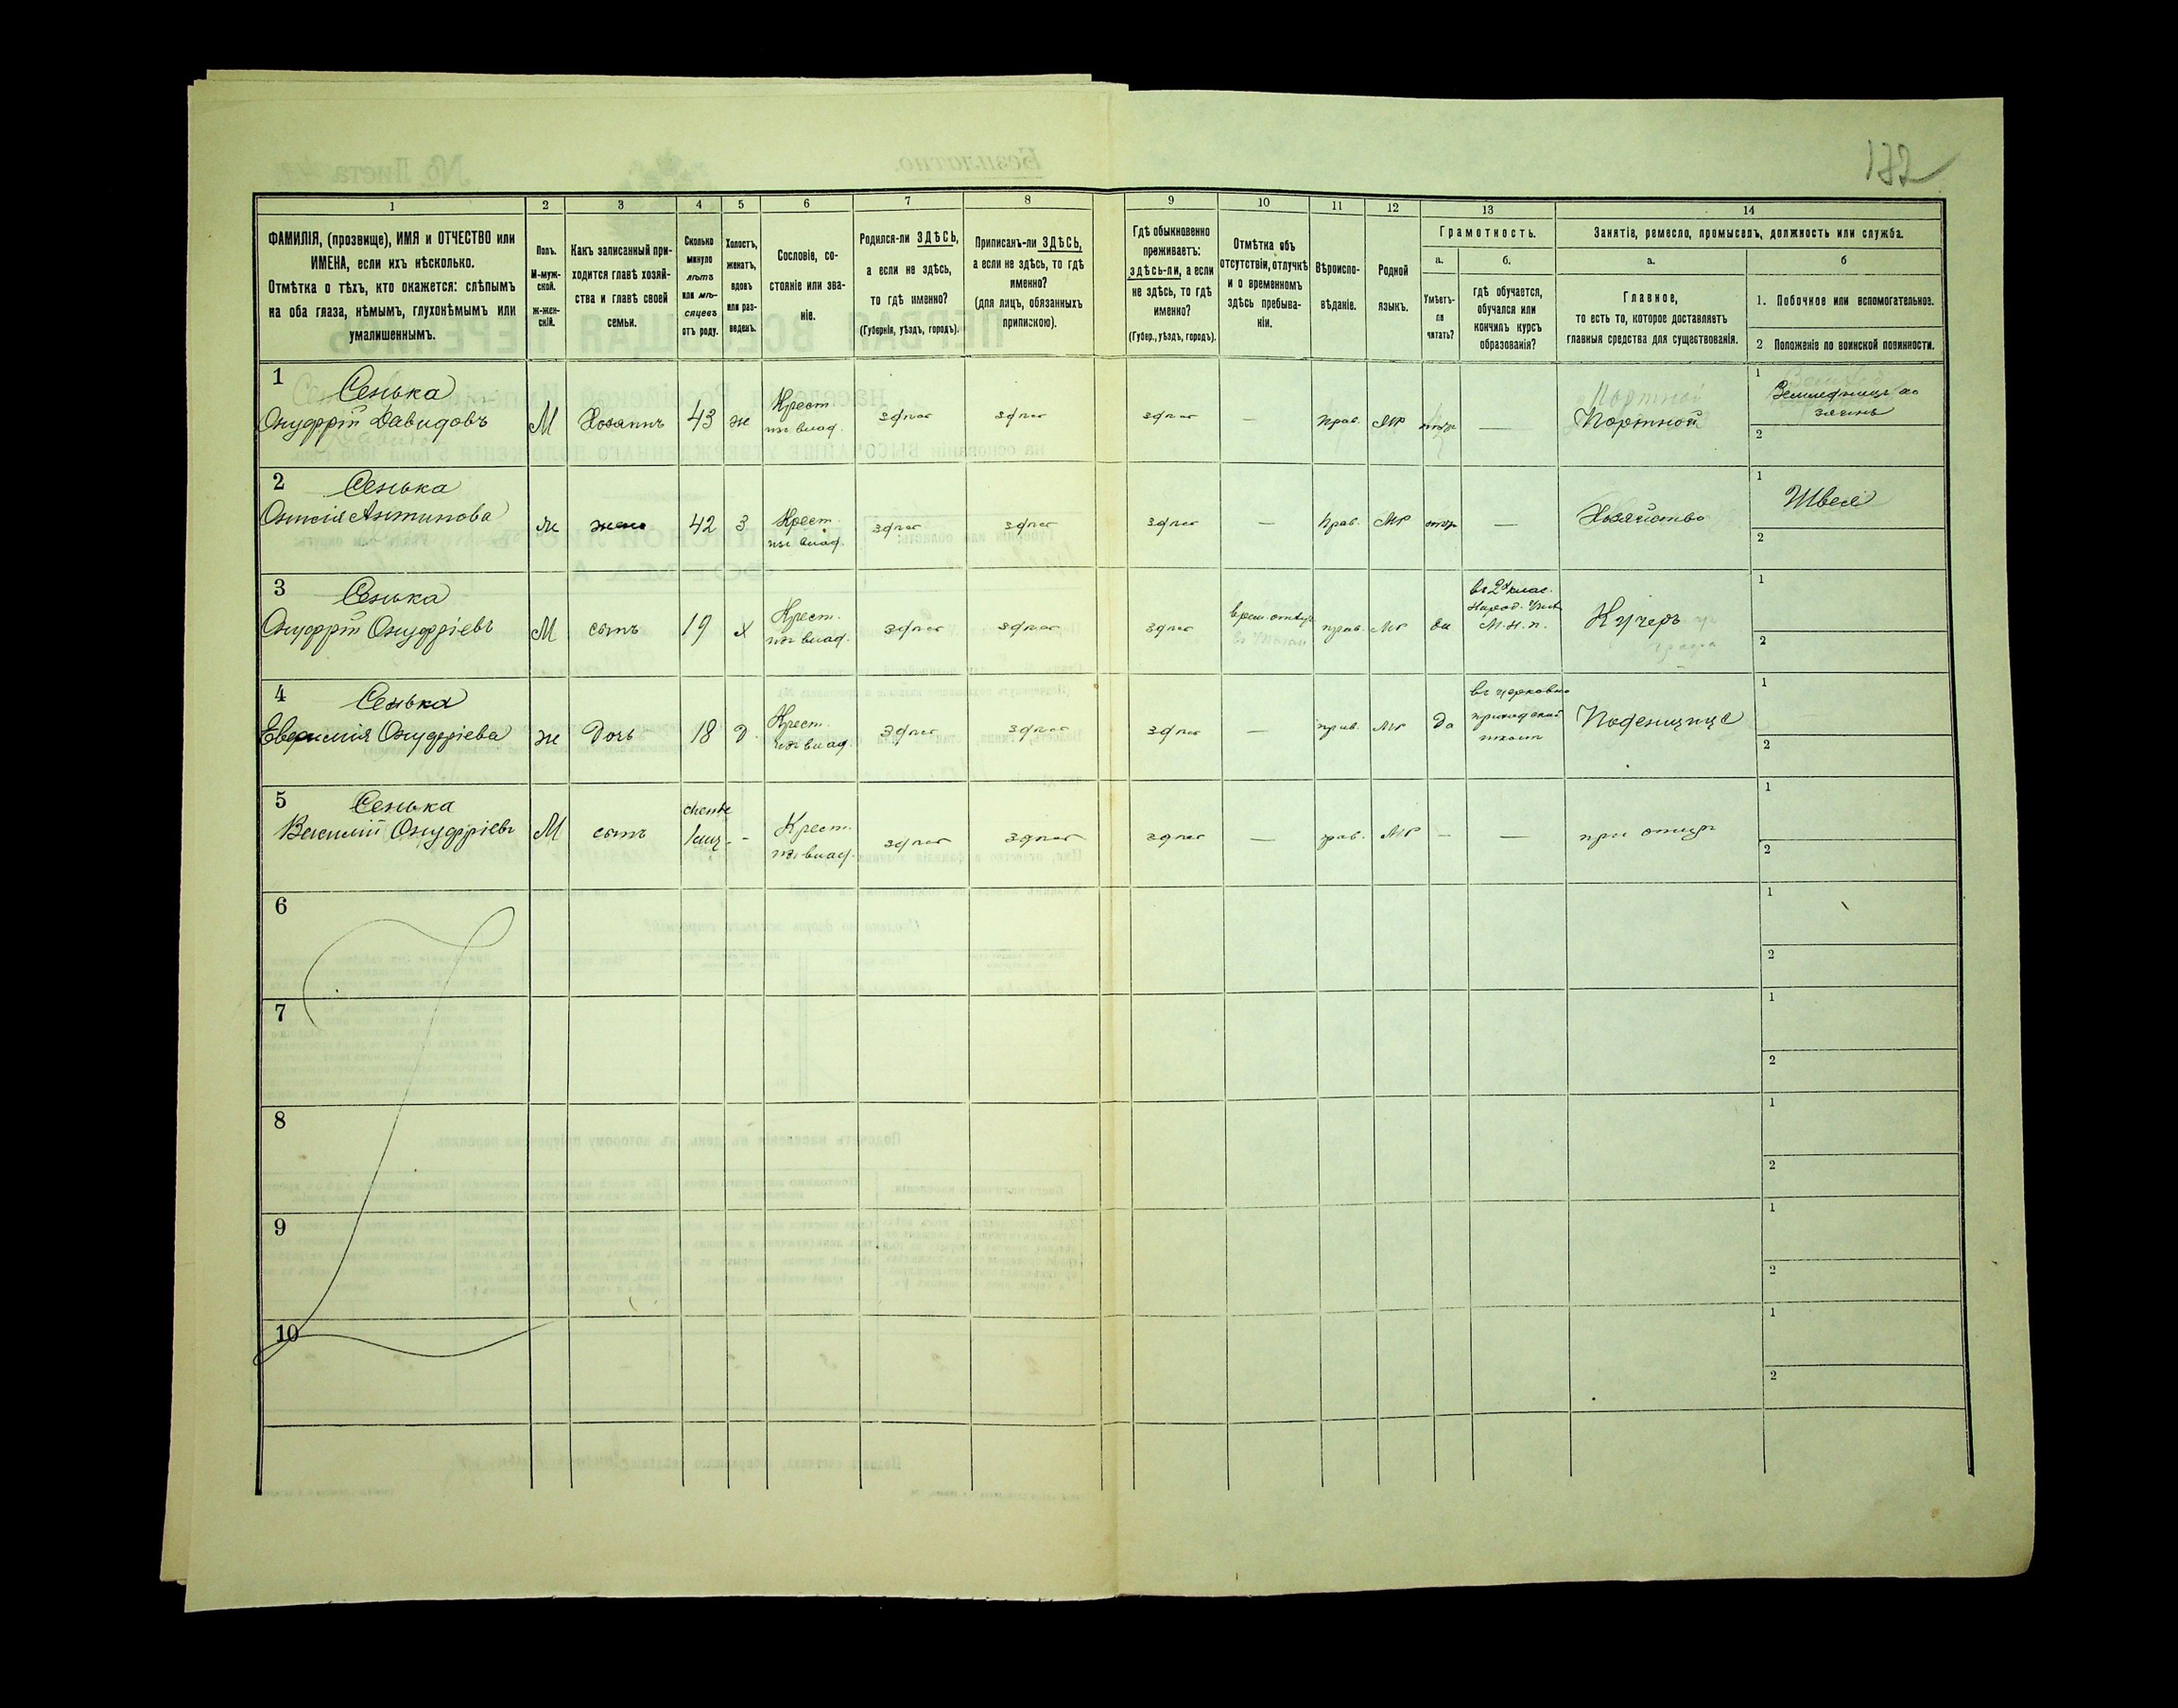 132
1 2 3 4 5 6 7 8 9 10 11 12 13 14
ФАМИЛІЯ, (прозвище), ИМЯ и ОТЧЕСТВО или
ИМЕНА, если ихъ нѣсколько.
Отмѣтка о тѣхъ, кто окажется: слѣпымъ
на оба глаза, нѣмымъ, глухонѣмымъ или
умалишеннымъ.
Полъ.
М-муж-
ской.
ж-жен-
скій.
Какъ записанный при-
ходится главѣ хозяй-
ства и главѣ своей
семьи.
Сколько
минуло
лѣтъ
или мѣ-
сяцевъ
отъ роду.
Холостъ,
женатъ,
вдовъ
или раз-
веденъ.
Сословіе, со-
стояніе или зва-
ніе.
Родился-ли ЗДѢСЬ,
а если не здѣсь,
то гдѣ именно?
(Губернія, уѣздъ, городъ).
Приписанъ-ли ЗДѢСЬ,
а если не здѣсь, то гдѣ
именно?
(для лицъ, обязанныхъ
припискою).
Гдѣ обыкновенно
проживаетъ:
здѣсь-ли, а если
не здѣсь, то гдѣ
именно?
(Губер., уѣздъ, городъ).
Отмѣтка объ
отсутствіи, отлучкѣ
и о временномъ
здѣсь пребыва-
ніи.
Вѣроиспо-
вѣданіе.
Родной
языкъ.
Грамотность.
а.
Умѣетъ-
ли
читать?
б.
гдѣ обучается,
обучался или
кончилъ курсъ
образованія?
Занятіе, ремесло, промыселъ, должность или служба.
а.
Главное,
то есть то, которое доставляетъ
главныя средства для существованія.
б
1. Побочное или вспомогательное.
2 Положеніе по воинской повинности.
1 Сенька
Онуфрій Давидовъ М Хозяинъ 43 ж Крест.
изъ влад. здѣсь здѣсь здѣсь — прав. Мр нѣтъ — Портной
1
2
2 Сенька
Антипова ж жена 42 З Крест.
изъ влад. здѣсь здѣсь здѣсь — прав. Мр нѣтъ — Хозяйство
1 Швея
2
3 Сенька
Онуфрій Онуфріевъ М сынъ 19 х Крест.
изъ влад. здѣсь здѣсь здѣсь прав. Мр да
М. н. п. Кучеръ
1
2
4 Сенька
Евфимія Онуфріева ж Дочь 18 Д. Крест.
изъ влад. здѣсь здѣсь здѣсь — прав. Мр Да
въ церковно
приходской
школѣ Поденщица
1
2
5 Сенька
Василій Онуфріевъ М сынъ менѣе
1 мѣс. - Крест.
изъ влад. здѣсь здѣсь здѣсь — прав. Мр — — при отцѣ
1
2
6
1
2
7
1
2
8
1
2
9
1
2
10
1
2